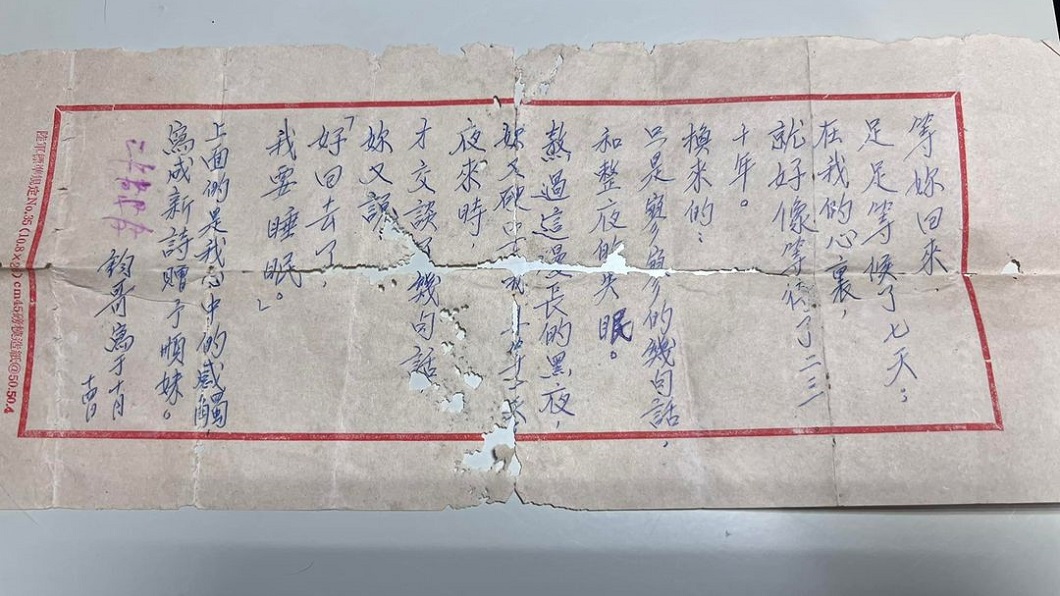 等妳回來，
足足等候了七天；
在我的心裏，
就好像等待了二三
十年。
換來的：
只是寥寥寥寥的幾句話，
和整夜的失眠。
熬過這漫長的黑夜，
妳又
夜來時，
才交談了幾句話，
妳又說：
「好回去了，
我要睡眠。」
上面的是我心中的感觸，
寫成新詩贈予順妹。
鈞哥寫于十月
十四日
No.35 (19.8×2 cm45磅模造紙@50.50.4